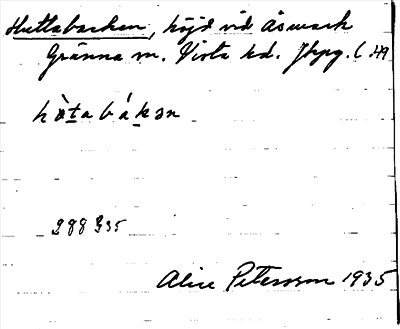 Huttabacken, höjd vid Åsmark
Gränna sn. Vista hd. Jkpg. L
hòtabákən
288335
Alice Petersson 1935